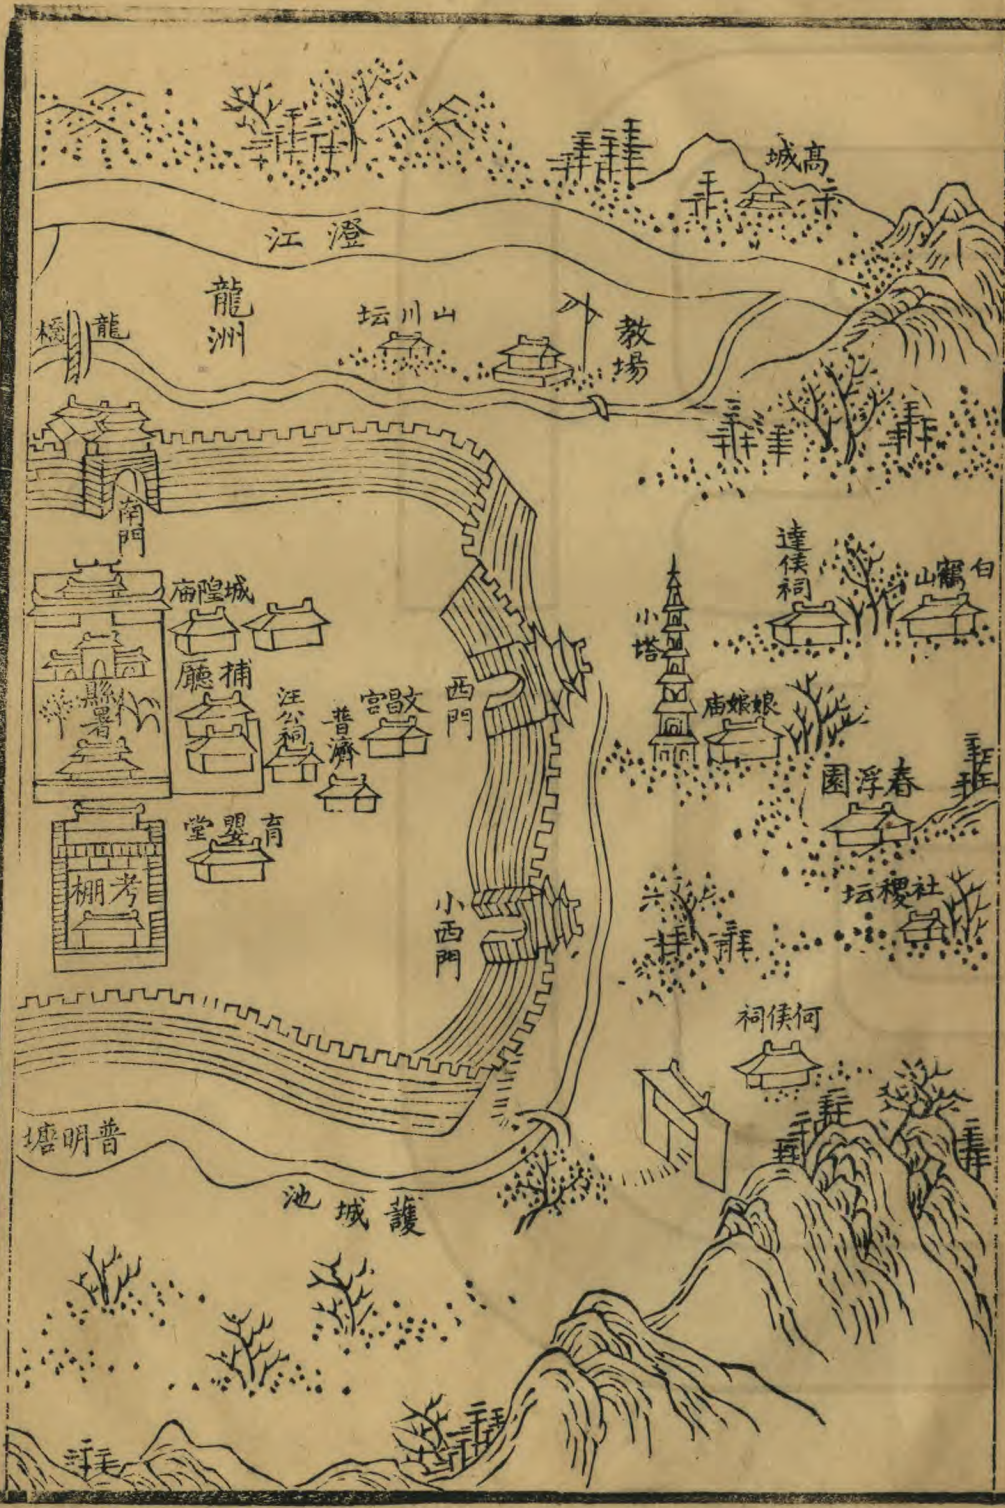 高城
澄江
龍洲
龍橋
山川坛
教場
南門
城隍庙
捕廳
縣署
汪公祠
普濟
文昌宮
西門
育嬰堂
考棚
小西門
小塔
達侯祠
白鶴山
娘娘庙
春浮園
社稷坛
何侯祠
普明塘
護城池